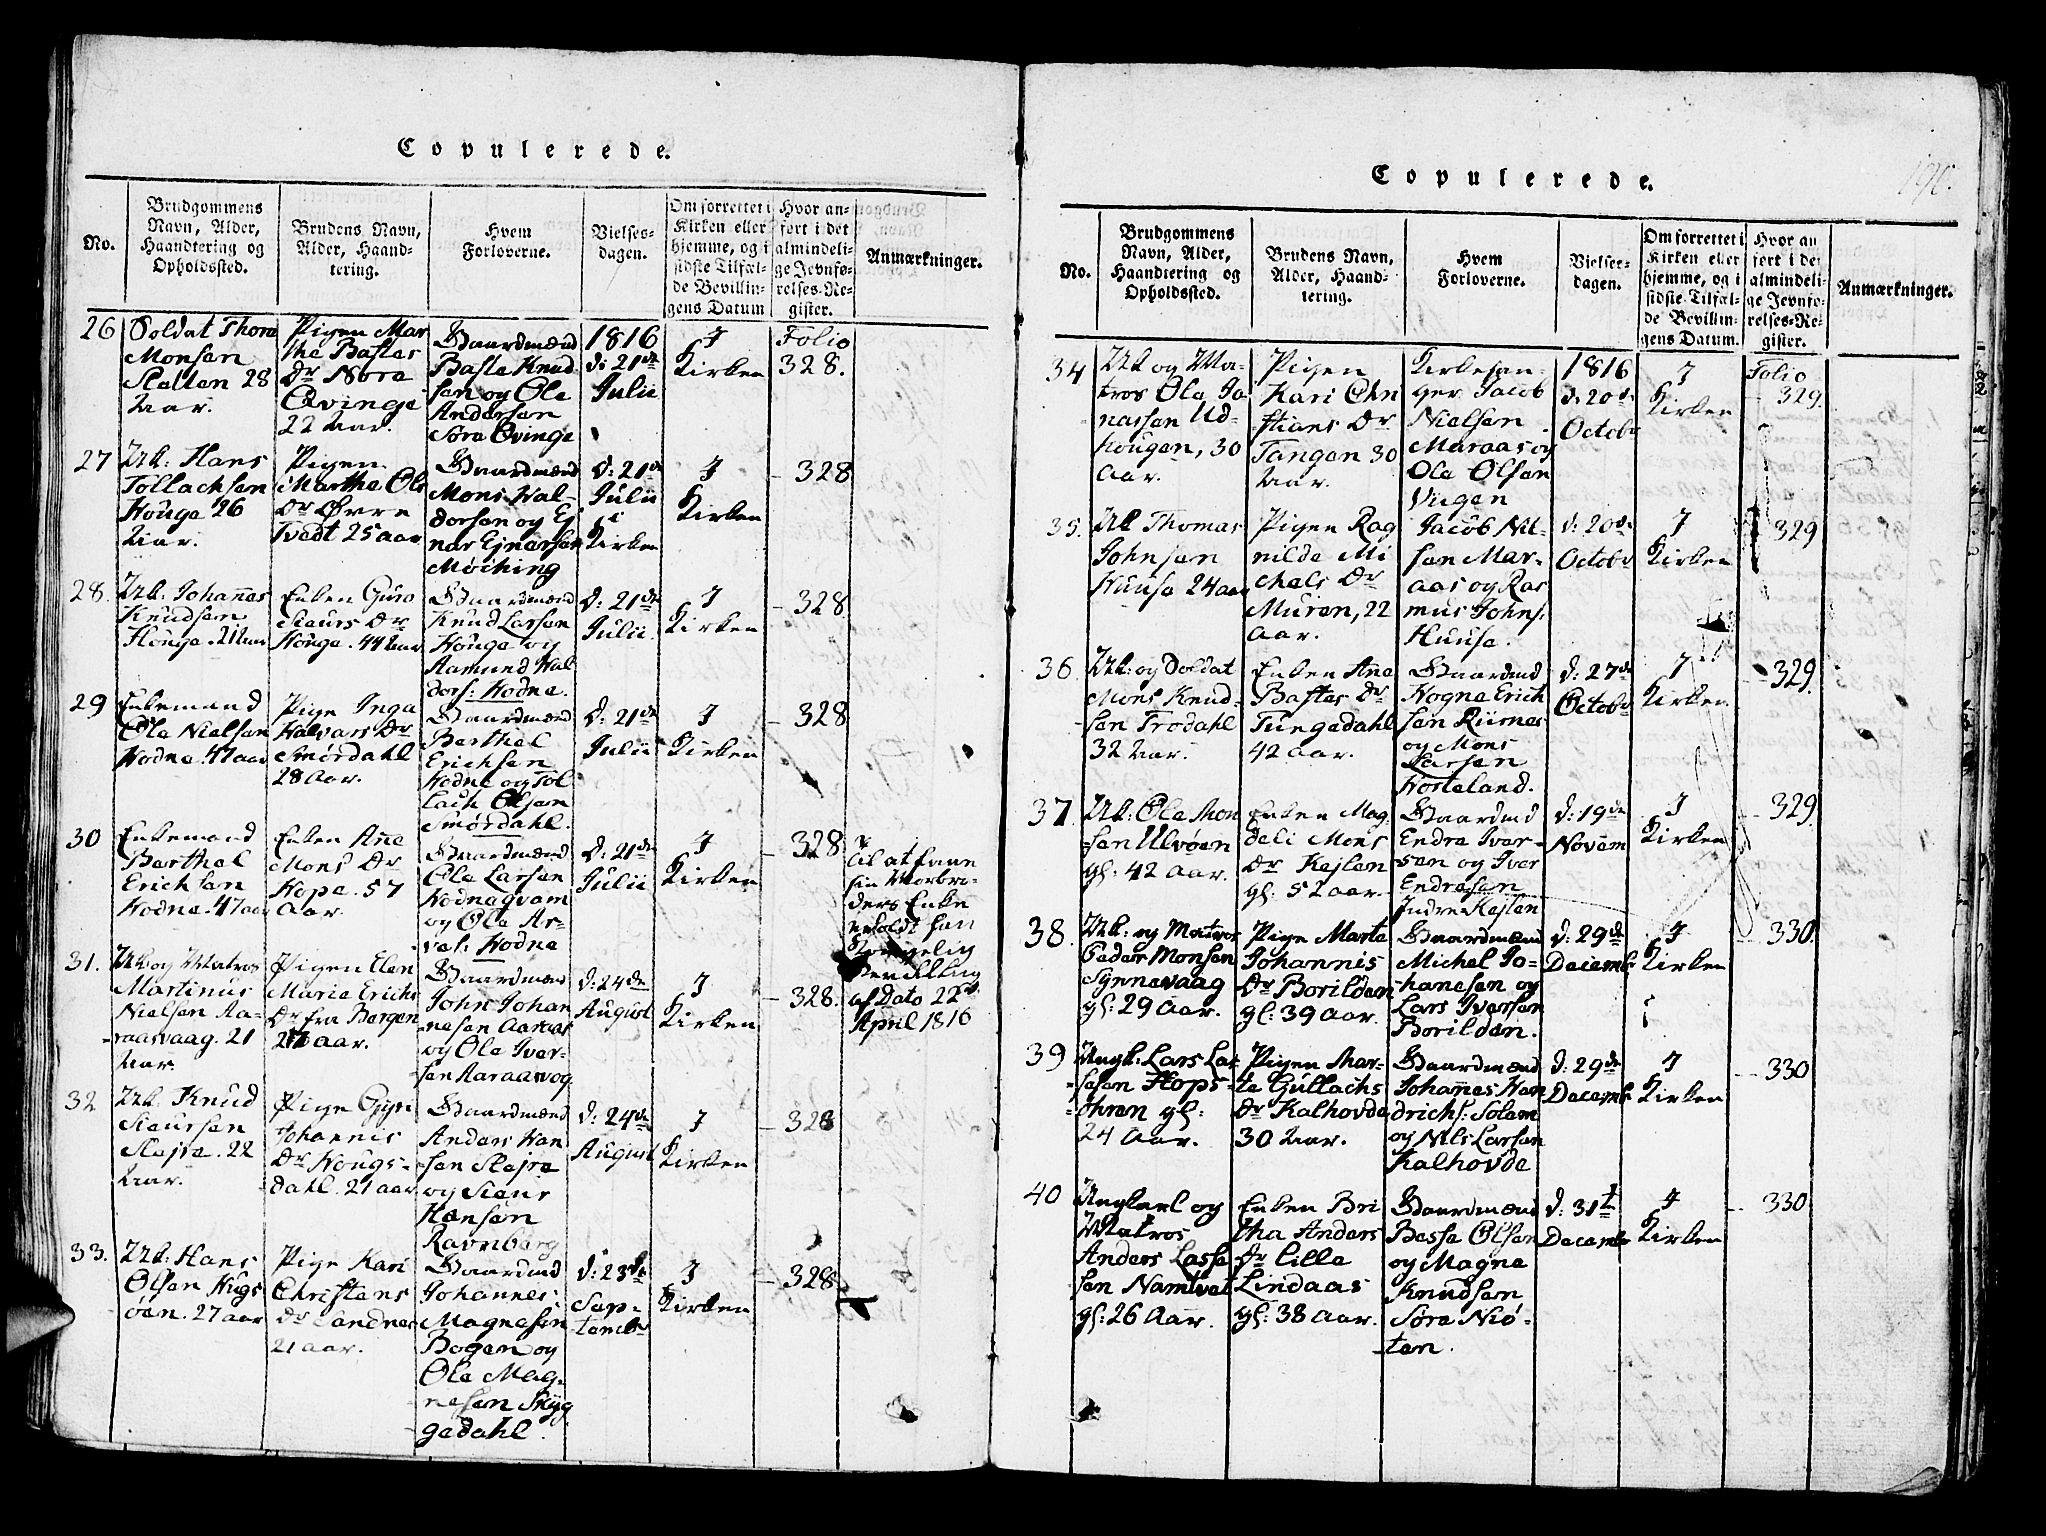 Copulerede.
No.
Brudgommens
Navn, Alder,
Haandtering og
Opholdssted.
Brudens Navn,
Alder, Haand-
tering.
Hvem
Forloverne.
Vielses-
dagen.
Om forrettet i
Kirken eller
hjemme, og i
sidste Tilfæl-
de Bevillin-
gens Datum
Hvor an-
ført i det
almindeli-
ge Jevnfø-
relses-Re-
gister.
Anmærkninger.
26
Soldat Thore
Monsen
Slatten 28
Aar.
Pigen Mar
the Bastes
Dr Nore
Qvinge
22 Aar.
Gaardmænd
Baste Knud
sen og Ole
Andersen
Søre Qvinge
1816
d: 21de
Julii
I
Kirken
Folio
328.
27
Ark: Hans
Tollachsen
Houge 26
Aar.
Pigen
Marthe Ols
Dr Øvre
Tvedt 25 aar
Gaardmænd
Mons Hal-
dorsen og Ej
nar Ejnersen
Møching
d: 21de
Julii
i
Kirken
I
Kirken
328
28.
Ark: Johannes
Knudsen
Houge. 21 aar
Enken Guro
Siaurs Dr
Houge. 44 aar
Gaardmænd
Knud Larsen
Houge og
Aamund Hal
dors: Hodne.
d: 21de
Julii
I
Kirken
328
29
Enkemand
Ole Nielsen
Hodne. 47 aar
Pige Inga
Halvars Dr
Smørdahl
28 Aar.
Gaardmænd
Berthel
Erichsen
Hodne og Tol
lach Olsen
Smørdahl.
d: 21de
Julii
I
Kirken
328
30
Enkemand
Berthel
Erichsen
Hodne. 47 aar
Enken Ane
Mons Dr
Hope. 57
Aar.
Gaardmænd
Ole Larsen
Hodneqvam
og Ole Ar-
ves: Hodne
d: 21de
Julii
I
Kirken
328
Til at faae
sin Morbro-
ders Enke
erholdt han
Kongelig
Bevilling
af Dato 22de
April 1816
31.
Ark og Matros
Martinus
Nielsen Aa-
raasvaag. 21
Aar.
Pigen Elen
Marie Erichs
Dr fra Bergen
aar.
Gaardmænd
John Johan
nesen Aaraas
og Ole Iver-
sen Aaraasvog
d: 24de
August
I
Kirken
328.
32
Ark: Knud
Siaursen
Slejre. 22
Aar.
Pige Gyri
Johannis
Dr Hougs-
dahl. 21 aar
Gaardmænd
Anders Han
sen Slejre
og Siaur
Hansen
Ravnberg
d: 24de
August
I
Kirken
328
33.
Ark: Hans
Olsen Hugs
øen. 27 aar
Pige Kari
Christens
Dr Landnes
21 aar.
Gaardmd
Johannes
Magnesen
Bogen og
Ole Mag-
nesen Skyg
gedahl.
d: 23de
Sep-
tembr
I
Kirken
328
Copulerede.
190.
No.
Brudgommens
Navn, Alder,
Haandtering og
Opholdssted.
Brudens Navn,
Alder, Haand-
tering.
Hvem
Forloverne.
Vielses-
dagen.
Om forrettet i
Kirken eller
hjemme, og i
sidste Tilfæl-
de Bevillin-
gens Datum.
Hvor an
ført i det
almindeli-
ge Jevnfø-
relses-Re-
gister.
Anmærkninger.
34
Ark og Ma-
tros Ole Jo
nassen Ud-
hougen, 30
Aar.
Pigen
Kari Chri
stians Dr
Tangen 30
Aar.
Kirkesan-
ger Jacob
Nielsen
Maraas og
Ole Olsen
Viigen
1816
d: 20de
Octobr
I
Kirken
Folio
329.
35.
Ark Thomas
Johnsen
Huuse 24 aar
Pigen Rag
nilde Mi
chels Dr
Muren, 22
Aar.
Jacob Nil-
sen Mar-
aas og Ras
mus Johns:
Huuse.
d: 20de
Octobr
I
Kirken
329
36
Ark: og Soldat
Mons Knud-
sen Trodahl
32 Aar.
Enken Ane
Bastes Dr
Tungedahl
42 Aar.
Gaardmd
Hogne Erich
sen Riisnes
og Mons
Larsen
Hosteland.
d: 27de
Octobr
I
Kirken
329.
37.
Ark: Ole Mon
sen Ulvøen
gl: 42 aar.
Enken Mag
deli Mons
Dr Kejlen
gl: 52 aar.
Gaardmd
Endre Iver-
sen og Iver
Endresen
Indre Kejlen
d: 19de
Novem
I
Kirken
329.
38.
Ark: og Matros
Peder Monsen
Synnevaag
gl: 29 Aar.
Pige Marte
Johannis
Dr Borilden
gl: 39 Aar.
Gaardmænd
Michel Jo-
hanesen og
Lars Iversen
Borilden.
d: 29de
Decembr
I
Kirken
330.
39
Ungk: Lars Las
sesen Hops-
øhren gl:
24 Aar.
Pigen Mar-
te Gullachs
Dr Kalhovde
30 Aar.
Gaardmænd
Johannes Hen
drichs: Solem
og Nils Larsen
Kalhovde
d: 29de
Decembr
I
Kirken
330
40
Ungkarl og
Matros
Anders Lasse
sen Namtvet
gl: 26 Aar.
Enken Bri
tha Anders
Dr Lille
Lindaas
gl: 38 Aar.
Gaardmænd
Besse Olsen
og Magne
Knudsen
Søre Niø-
ten.
d: 31t
Decembr
I
Kirken
330